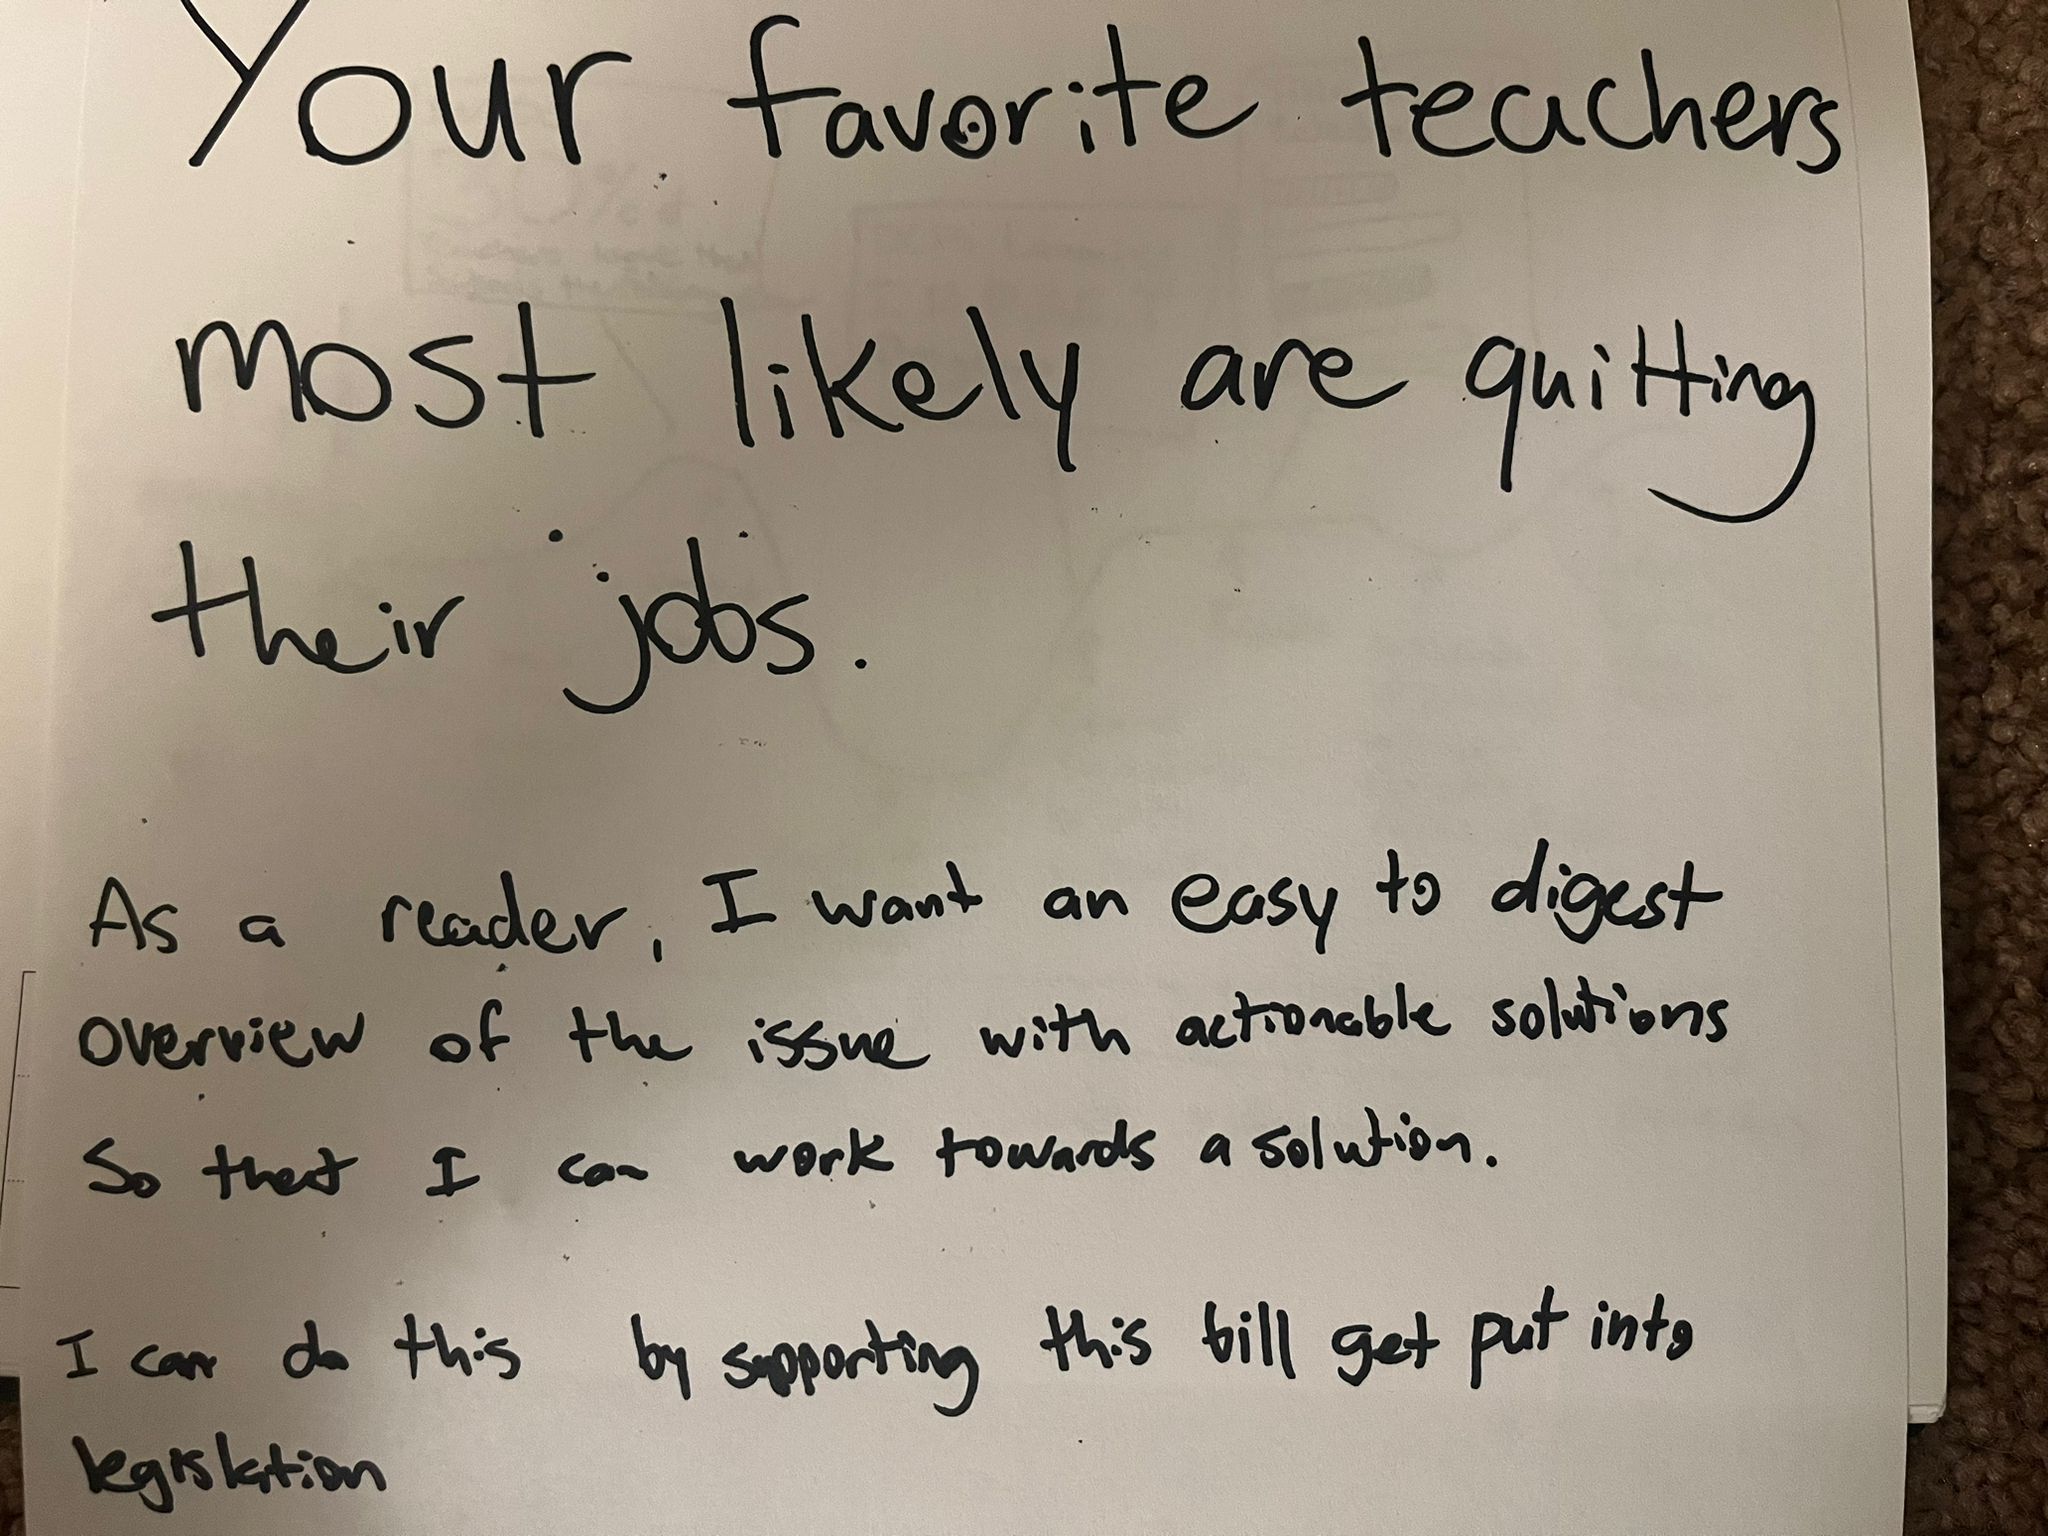 Your favorite teachers
most likely are quitting
their jobs.
As a reader, I want an easy to digest
overview of the issue with actionable solutions
So that I can work towards a solution.
I can do this by supporting this bill get put into
legislation